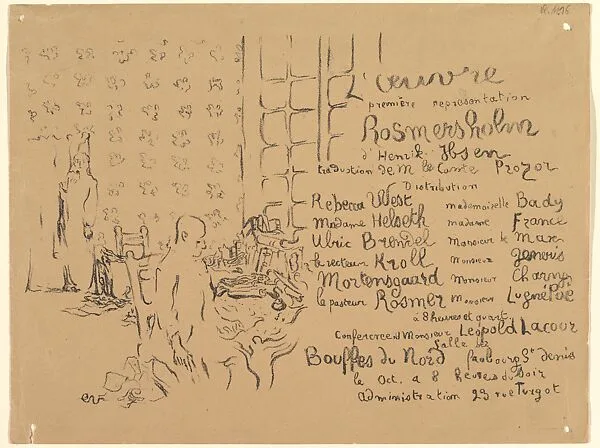 L'œuvre
première representation
Rosmersholm
d'Henrik Ibsen
traduction de M le Comte Prozor
Distribution
Rebecca West mademoiselle Bady
Madame Helseth madame France
Ulric Brendel Monsieur de Max
le recteur Kroll Monsieur
Mortensgaard Monsieur Charny
le pasteur Rosmer Monsieur Lugné Poe
à 8 heures et quart
Conference de Monsieur Léopold Lacour
Salle des
Bouffes du Nord faubourg St denis
le Oct. a 8 heures du soir
administration 23 rue Turgot
ev